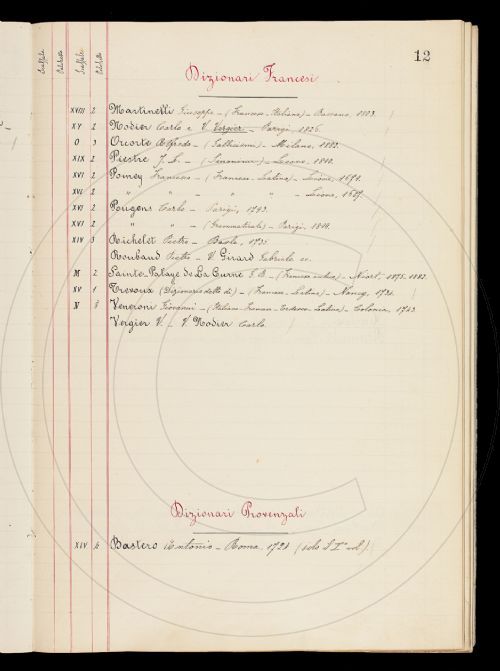 12
Scaffale Palchetto Scaffale Palchetto
Dizionari Francesi
XVIII 2 Martinelli Giuseppe - (Francese-Italiano) - Bassano, 1803.
XV 2 Nodier Carlo e V. Verger - Parigi, 1826.
O 3 Orcorte Alfredo - (Gallicismi) - Milano, 1882.
XIX 2 Piestre J. L. - (Sinonimi) - Lione, 1810.
XVI 2 Pomey Francesco - (Francese-Latino) - Lione, 1671.
XVI 2 " " " " " - Lione,
XVI 2 Pougens Carlo - Parigi, 1793.
XVI 2 " " (Grammaticale) - Parigi,
XIV 3 Richelet Pietro - Basle, 1735.
Roubaud Pietro - V. Girard Gabriele
M 2 Sainte-Palaye de La Curne - Niort, 1875-1882.
XV 1 Trevoux (Dizionario detto di) - (Francese-Latino) - Nancy,
N 3 Veneroni Giovanni - (Italiano-Francese-Tedesco-Latino) - Colonia, 1743
Vergier V. - V. Nodier Carlo.
Dizionari Provenzali
XIV Bastero Antonio - Roma, 1724 (solo il I° vol.)